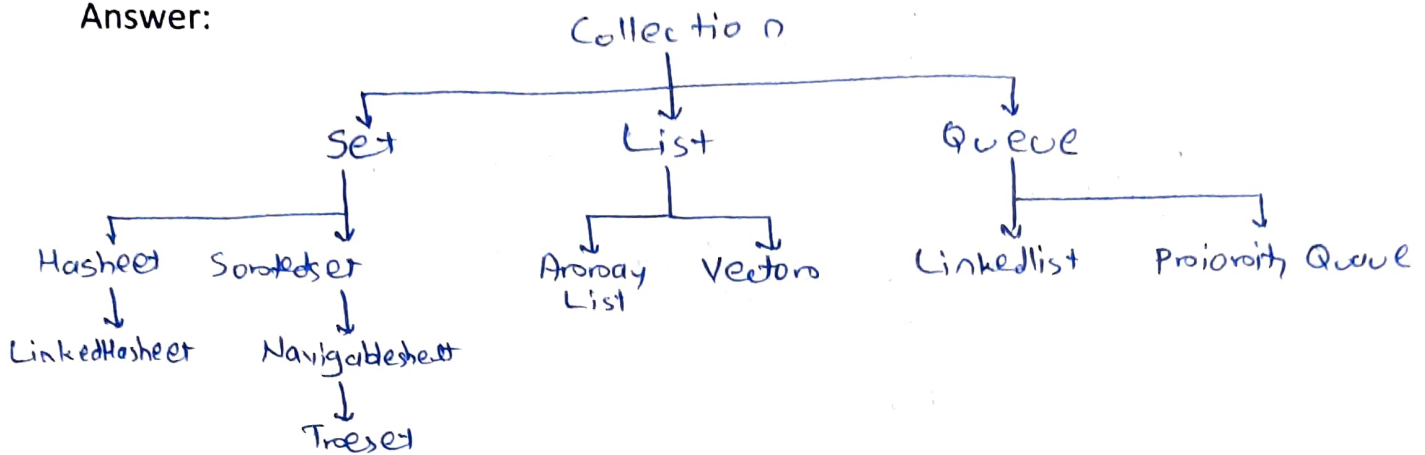 Answer:
Collection
Set List Queue
Hasheet Sorotedset Aroroay List Vectoro Linkedlist Proioroity Queue
LinkedHasheet Navigablesheet
Troeset